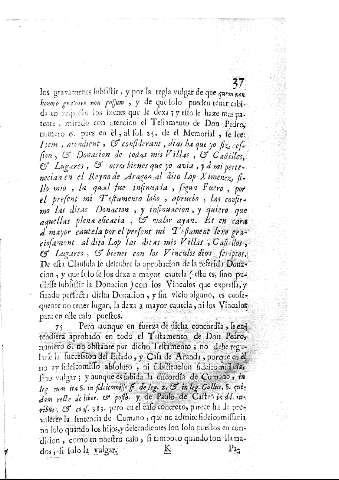 37
los gravamenes subsistir, y por la regla vulgar de que quem non
honoro gravare non possum, y de que solo pueden tener cabi-
da en respecto los bienes que le dexa; y esto se hace mas pa-
tente, mirado con atencion el Testamento de Don Pedro,
numero 6. pues en èl, al fol. 25. de el Memorial, se lee:
Item, atendient, & considerant, dias ha que yo fiz cess-
sion, & Donacion de todas mis Villas, & Castillos,
& Lugares, & otros bienes que yo avia, y à mi perte-
necian en el Reyno de Aragon al dito Lop Ximenez, fi-
llo mio, la qual fue insinuada, segun Fuero, por
el present mi Testamento lobo, apruebo, las confir-
mo las ditas Donacion, y insinuacion, y quiero que
aquellas plena eficacia, & valor ayan. Et en cara
à mayor cautela por el present mi Testament dexo gra-
ciosament al dito Lop las ditas mis Villas, Castillos,
& Lugares, & bienes con los Vinculos dius scriptos.
De esta Clausula se deduce la aprobacion de la referida Dona-
cion, y que solo se los dexa à mayor cautela (esto es, sino pu-
diesse subsistir la Donacion) con los Vinculos que expressa, y
siendo perfecta dicha Donacion, y sin vicio alguno, es conse-
quente no tener lugar, la dexa à mayor cautela, ni los Vinculos
para en este caso puestos.
75 Pero aunque en fuerza de dicha concordia, se en-
tendiera aprobado en todo el Testamento de Don Pedro,
numero 6. no obstante por dicho Testamento, no debe regu-
larse la succession del Estado, y Casa de Aranda, porque en èl
no ay fideicomisso absoluto, ni substitucion fideicomissaria,
sino vulgar; y aunque es sabida la discordia de Cumano, in
leg. cum
de leg. 2. & in leg. Gallus, §. qui-
dam recte de liber. & posth. y de Paulo de Castro in dd. iu-
ribus, & cons. 383. pero en el caso concreto, parece ha de pre-
valecer la sentencia de Cumano, que no admite fideicomissaria
no solo quando los hijos, y descendientes son solo puestos en con-
dicion, como en nuestro caso, si tampoco quando son llama-
dos, si solo la vulgar. K Pa-